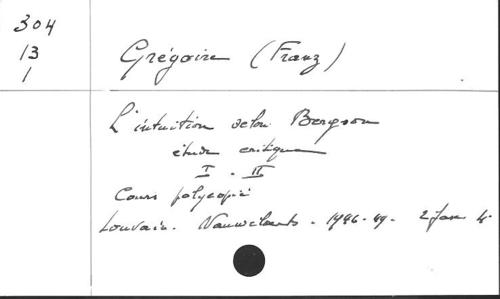 304
13
1
Grégoire (Franz)
L'intuition selon Bergson
étude critique
I - II
Cours polycopié
Louvain. Nauwelaerts - 1946-49. 2 fasc 4°